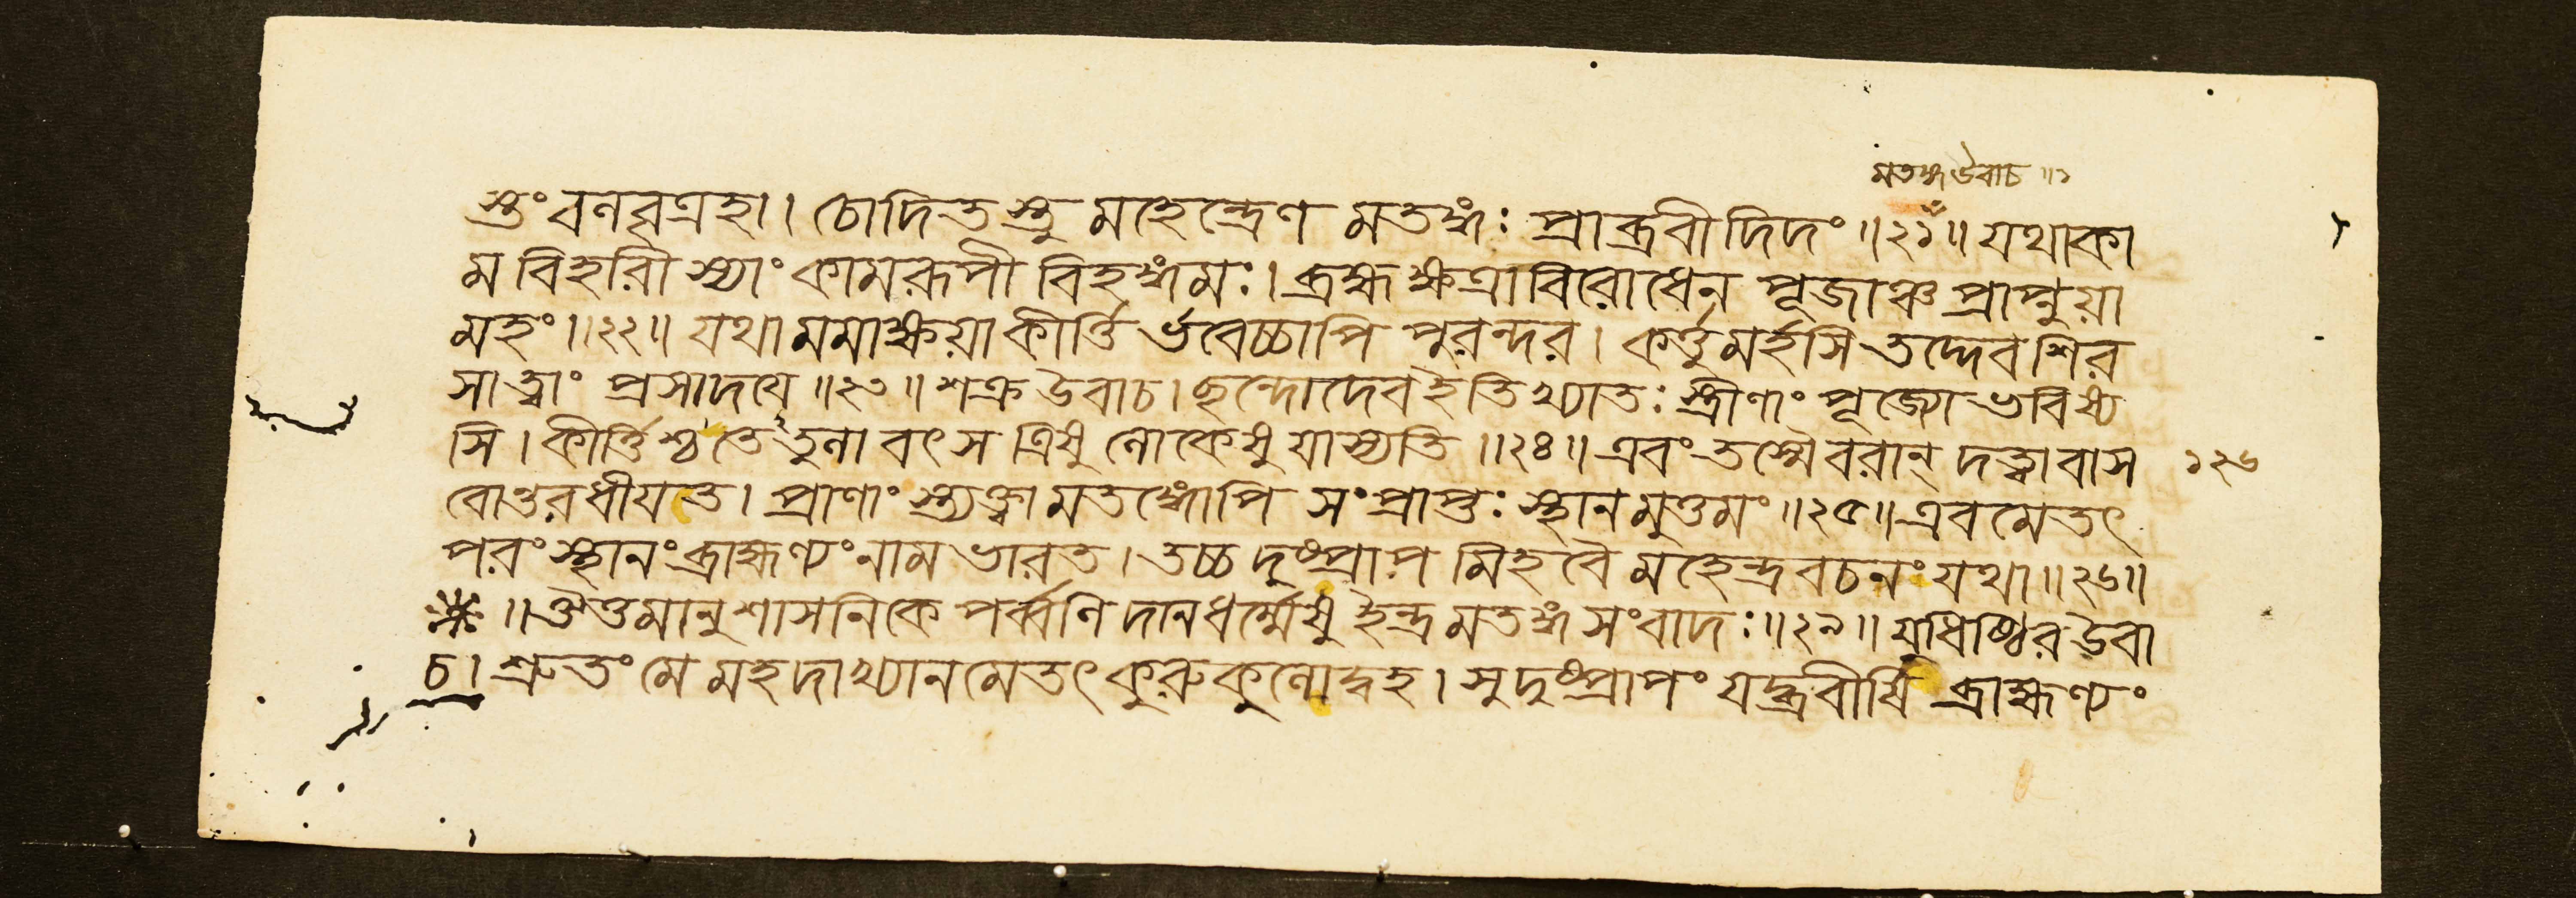 মতঙ্গউবাচ॥১
স্তং বলবৃত্রহা। চোদিতস্তু মহেন্দ্রেণ মতঙ্গঃ প্রাব্রবীদিদং॥২১॥যথাকা
ম বিহারী স্যাং কামরূপী বিহঙ্গমঃ। ব্রহ্মক্ষত্রাবিরোধেন পূজাঞ্চ প্রাপ্নুয়া
মহং॥২২॥ যথা মমাক্ষয়া কীর্ত্তি র্ভবেচ্চাপি পুরন্দর। কর্ত্তুমর্হসি তদ্দেব শির
সা ত্বাং প্রসাদয়ে॥২৩॥শক্র উবাচ। ছন্দোদেব ইতি খ্যাতঃ স্ত্রীণাং পূজ্যো ভবিষ্য
সি। কীর্ত্তিশ্চ তে তুলা বৎস ত্রিষু লোকেষু যাস্যতি॥২৪॥এবং তস্মৈ বরান্ দত্ত্বা বাস
বোন্তরধীয়ত। প্রাণাং স্ত্যক্ত্বা মতঙ্গোপি সংপ্রাপ্তঃ স্থানমুত্তমং॥২৫॥এবমেতৎ
১২৬
পরং স্থানং ব্রাহ্মণ্যং নাম ভারত। তচ্চ দুষ্প্রাপ মিহ বৈ মহেন্দ্রবচনং যথা॥২৬॥
॥ঔত্তমানুশাসনিকে পর্ব্বণি দানধর্ম্মেষু ইন্দ্রমতঙ্গ সংবাদঃ॥২৯॥যুধিষ্ঠির উবা
চ। শ্রুতং মে মহদাখ্যানমেতৎ কুরুকুলোদ্বহ। সুদুষ্প্রাপং যদ্ব্রবীষি ব্রাহ্মণ্যং